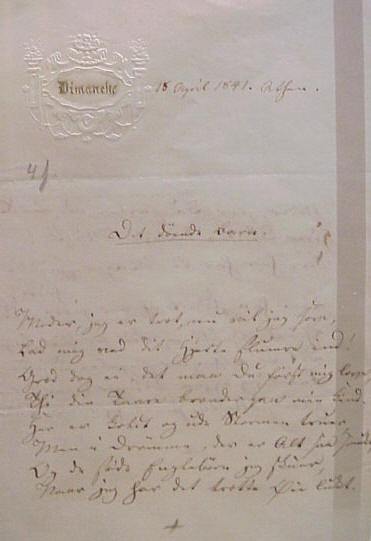 Dimanche
18 April 1841. Athen.
4).
Det döende Barn.
Moder, jeg er træt, nu vil jeg sove,
Lad mig ved dit Hjerte slumre ind!
Græd dog ei, det maa Du først mig love,
Thi din Taare brænder paa min Kind.
Her er koldt og ude Stormen truer,
Men i Drømme, der er Alt saa smukt
Og de søde Englebørn jeg skuer,
Naar jeg har det trætte Øie lukt.